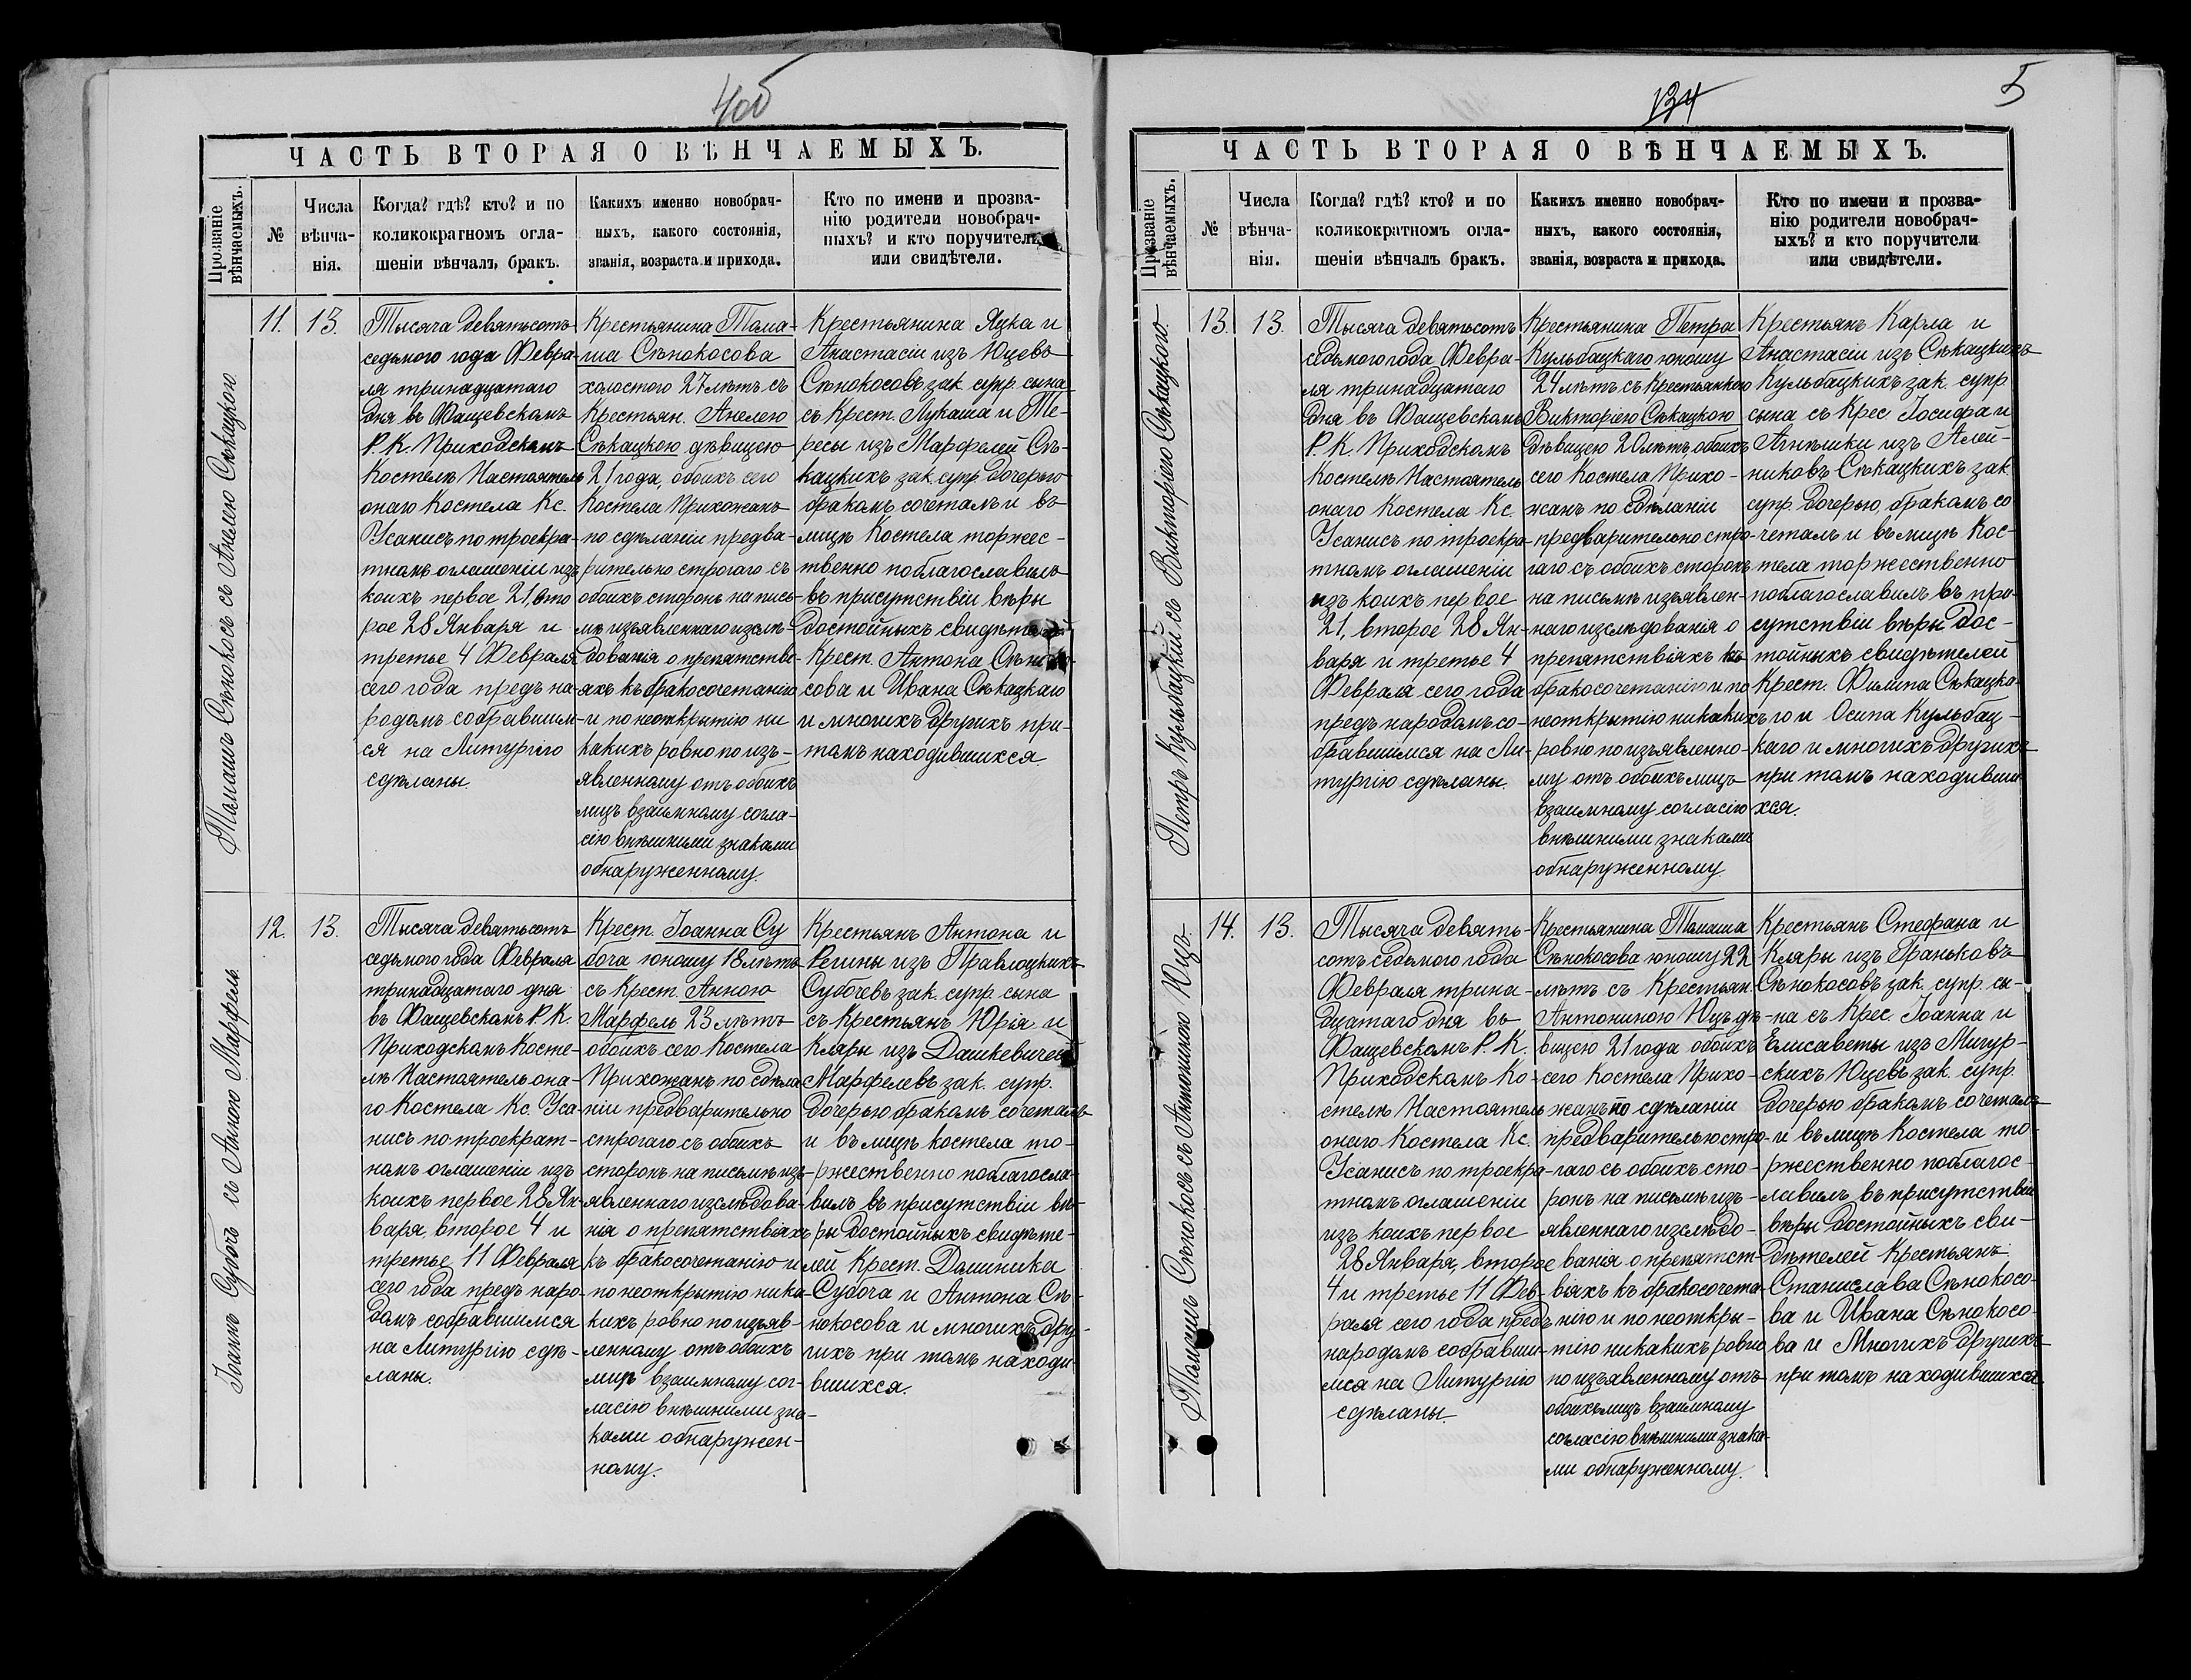 4об
ЧАСТЬ ВТОРАЯ О ВѢНЧАЕМЫХЪ.
Прозваніе вѣнчаемыхъ.
№
Числа вѣнча-
нія.
Когда? гдѣ? кто? и по
коликократномъ огла-
шеніи вѣнчалъ бракъ.
Какихъ именно новобрач-
ныхъ, какого состоянія,
званія, возраста и прихода.
Кто по имени и прозва-
нію родители новобрач-
ныхъ? и кто поручители
или свидѣтели.
Томашъ Сѣнокосъ съ Анелею Сѣкацкою
11.
13.
Тысяча девятьсотъ
седьмого года Февра-
ля тринадцатаго
дня въ Фащевскомъ
Р. К. Приходскомъ
Костелѣ Настоятель
онаго Костела Кс.
Усанисъ по троекра-
тномъ оглашеніи изъ
коихъ первое 21, вто
рое 28 Января и
третье 4 Февраля
сего года предъ на-
родомъ собравшим-
ся на Литургію
сдѣланы.
Крестьянина Тома-
ша Сѣнокосова
холостого 27 лѣтъ съ
Крестьян. Анелею
Сѣкацкою дѣвицею
21 года, обоихъ сего
Костела Прихожанъ
по сдѣланіи предва-
рительно строгаго съ
обоихъ сторонъ на пись-
мѣ изъявленнаго изслѣ-
дованія о препятстві-
яхъ къ бракосочетанію
и по неоткрытію ни
какихъ ровно по изъ-
явленному отъ обоихъ
лицъ взаимному согла-
сію внѣшними знаками
обнаруженному.
Крестьянина Яцка и
Анастасіи изъ Юцевъ
Сѣнокосовъ зак. супр. сына
съ Крест. Лукаша и Те-
ресы изъ Марфелей Сѣ-
кацкихъ зак. супр. дочерью
бракомъ сочеталъ и въ
лицѣ Костела торжес-
твенно поблагославилъ
въ присутствіи вѣры
достойныхъ свидѣтелей
Крест. Антона Сѣноко-
сова и Ивана Сѣкацкаго
и многихъ другихъ при-
томъ находившихся
Іоаннъ Субочъ съ Анною Марфель
12.
13.
Тысяча девятьсотъ
седьмого года Февраля
тринадцатаго дня
въ Фащевскомъ Р. К.
Приходскомъ Косте-
лѣ Настоятель она-
го Костела Кс. Уса-
нисъ по троекрат-
номъ оглашеніи изъ
коихъ первое 28 Ян-
варя, второе 4 и
третье 11 Февраля
сего года предъ наро-
домъ собравшимся
на Литургію сдѣ-
ланы.
Крест. Іоанна Су
боча юношу 18 лѣтъ
съ Крест. Анною
Марфель 23 лѣтъ
обоихъ сего Костела
Прихожанъ по сдѣла
ніи предварительно
строгаго съ обоихъ
сторонъ на письмѣ изъ-
явленнаго изслѣдова-
нія о препятствіяхъ
къ бракосочетанію и
по неоткрытію ника-
кихъ ровно по изъяв-
ленному отъ обоихъ
лицъ взаимному сог-
ласію внѣшними зна-
ками обнаружен-
ному.
Крестьянъ Антона и
Регины изъ Правлоцкихъ
Субочевъ зак. супр. сына
съ Крестьянъ Юрія и
Кляры изъ Дашкевичей
Марфелевъ зак. супр.
дочерью бракомъ сочеталъ
и въ лицѣ костела то-
ржественно поблагосла-
вилъ въ присутствіи вѣ-
ры достойныхъ свидѣте-
лей Крест. Доминика
Субоча и Антона Сѣ-
нокосова и многихъ дру-
гихъ при томъ находи-
вшихся.
134
5
ЧАСТЬ ВТОРАЯ О ВѢНЧАЕМЫХЪ.
Прозваніе вѣнчаемыхъ.
№
Числа вѣнча-
нія.
Когда? гдѣ? кто? и по
коликократномъ огла-
шеніи вѣнчалъ бракъ.
Какихъ именно новобрач-
ныхъ, какого состоянія,
званія, возраста и прихода.
Кто по имени и прозва-
нію родители новобрач-
ыхъ? и кто поручители
или свидѣтели.
Петръ Кульбацкій съ Викторіею Сѣкацкою
13.
13.
Тысяча девятьсотъ
седьмого года Февра-
ля тринадцатаго
дня въ Фащевскомъ
Р. К. Приходскомъ
Костелѣ Настоятель
онаго Костела Кс.
Усанисъ по троекра-
тномъ оглашеніи
изъ коихъ первое
21, второе 28 Ян-
варя и третье 4
Февраля сего года
предъ народомъ со-
бравшимся на Ли-
тургію сдѣланы.
Крестьянина Петра
Кульбацкаго юношу
24 лѣтъ съ Крестьянкою
Викторіею Сѣкацкою
дѣвицею 20 лѣтъ, обоихъ
сего Костела Прихо-
жанъ по сдѣланіи
предварительно стро-
гаго съ обоихъ сторонъ
на письмѣ изъявлен-
наго изслѣдованія о
препятствіяхъ къ
бракосочетанію и по
неоткрытію никакихъ
ровно по изъявленно-
му отъ обоихъ лицъ
взаимному согласію
внѣшними знаками
обнаруженному
Крестьянъ Карла и
Анастасіи изъ Сѣкацкихъ
Кульбацкихъ зак. супр
сына съ Крес Іосифа и
Агнѣшки изъ Алей-
никовъ Сѣкацкихъ зак.
супр. дочерью, бракомъ со
четалъ и въ лицѣ Кос-
тела торжественно
поблагославилъ въ при-
сутствіи вѣры дос-
тойныхъ свидѣтелей
Крест. Филипа Сѣкацка-
го и Осипа Кульбац-
каго и многихъ другихъ
при томъ находивши
хся.
Томашъ Сѣнокосъ съ Антониною Юцъ
14.
13.
Тысяча девять-
сотъ седьмого года
Февраля трина-
дцатаго дня въ
Фащевскомъ Р. К.
Приходскомъ Ко-
стелѣ Настоятель
онаго Костела Кс.
Усанисъ по троекра-
тномъ оглашеніи
изъ коихъ первое
28 Января, второе
4 и третье 11 Фев-
раля сего года предъ
народомъ собравши-
мся на Литургію
сдѣланы.
Крестьянина Томаша
Сѣнокосова юношу 22
лѣтъ съ Крестьян.
Антониною Юцъ дѣ-
вицею 21 года обоихъ
сего Костела Прихо-
жанъ по сдѣланіи
предварительно стро-
гаго съ обоихъ сто-
ронъ на письмѣ изъ-
явленнаго изслѣдо-
ванія о препятст-
віяхъ къ бракосочета-
нію и по неоткры-
тію никакихъ ровно
по изъявленному отъ
обоихъ лицъ взаимному
согласію внѣшними знака-
ми обнаруженному.
Крестьянъ Стефана и
Кляры изъ Граньковъ
Сѣнокосовъ зак. супр. сы-
на съ Крес. Іоанна и
Елисаветы изъ Мигур-
скихъ Юцевъ зак. супр.
дочерью бракомъ сочеталъ
и въ лицѣ Костела то-
ржественно поблагос-
лавилъ въ присутствіи
вѣры достойныхъ сви-
дѣтелей Крестьянъ
Станислава Сѣнокосо-
ва и Ивана Сѣнокосо-
ва и Многихъ другихъ
при томъ находившихся